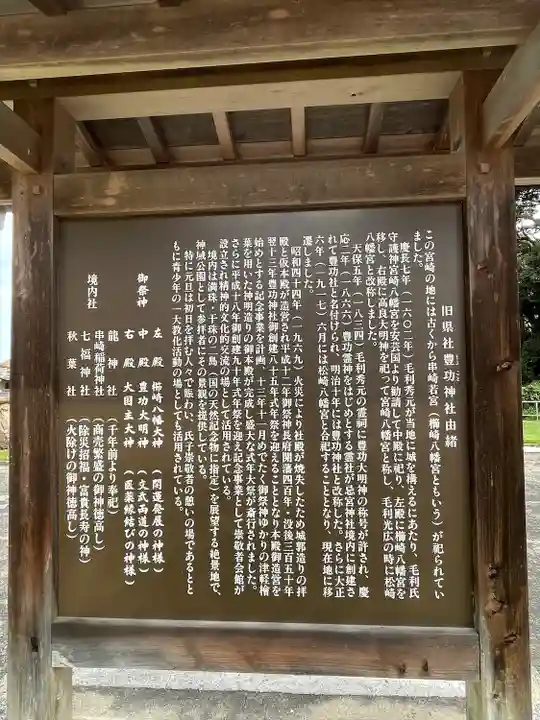 旧県社豊功神社由緒
この宮崎の地には古くから串崎若宮(櫛崎八幡宮ともいう)が祀られてい
ました。
慶長七年(一六〇二)毛利秀元が当地に城を構えるにあたり、毛利氏
守護神宮崎八幡宮を安芸国より勧請して中殿に祀り、左殿に櫛崎八幡宮を
移し、右殿に高良大明神を祀って宮崎八幡宮と称し、毛利光広の時に松崎
八幡宮と改称しました。
天保五年(一八三四)毛利秀元の霊祠に豊功大明神の称号が許され、慶
応二年(一八六六)豊功霊神をはじめとする霊社が忌宮神社境内に創建さ
れて豊功社と名付けられ、明治十七年には豊功神社と改称した。さらに大正
六年(一九一七)六月には松崎八幡宮と合祀することとなり、現在地に移
遷しました。
昭和四十四年(一九六九)火災により社殿が焼失したため城郭造りの拝
殿と仮本殿が造営され平成十二年御祭神長府開藩四百年・没後三百五十年
翌十三年豊功神社御創建八十五年式年祭を迎えることとなり本殿御造営を
始めとする記念事業を計画、十三年十一月めでたく御祭神ゆかりの津軽檜
葉を用いた神明造りの御本殿が完成し盛大な式年大祭が斎行されました。
さらに平成十八年御創建九十年式年祭を迎え記念事業として崇敬者会館が
設立され精神的文化的交流の場として活用されている。
境内は満珠・干珠の二島(国の天然記念物に指定)を展望する絶景地で、
神域公園として参拝者にその景観を提供している。
特に元旦は初日を拝む人々で賑わい、氏子崇敬者の憩いの場であるとと
もに青少年の一大教化活動の場としても活用されている。
御祭神
左殿 櫛崎八幡大神 (開運発展の神様)
中殿 豊功大明神 (文武両道の神様)
右殿 大国主大神 (医薬縁結びの神様)
境内社
龍神社 (千年前より奉祀)
串崎稲荷神社 (商売繁盛の御神徳高し)
七福神社 (除災招福・富貴長寿の神)
秋葉社 (火除けの御神徳高し)